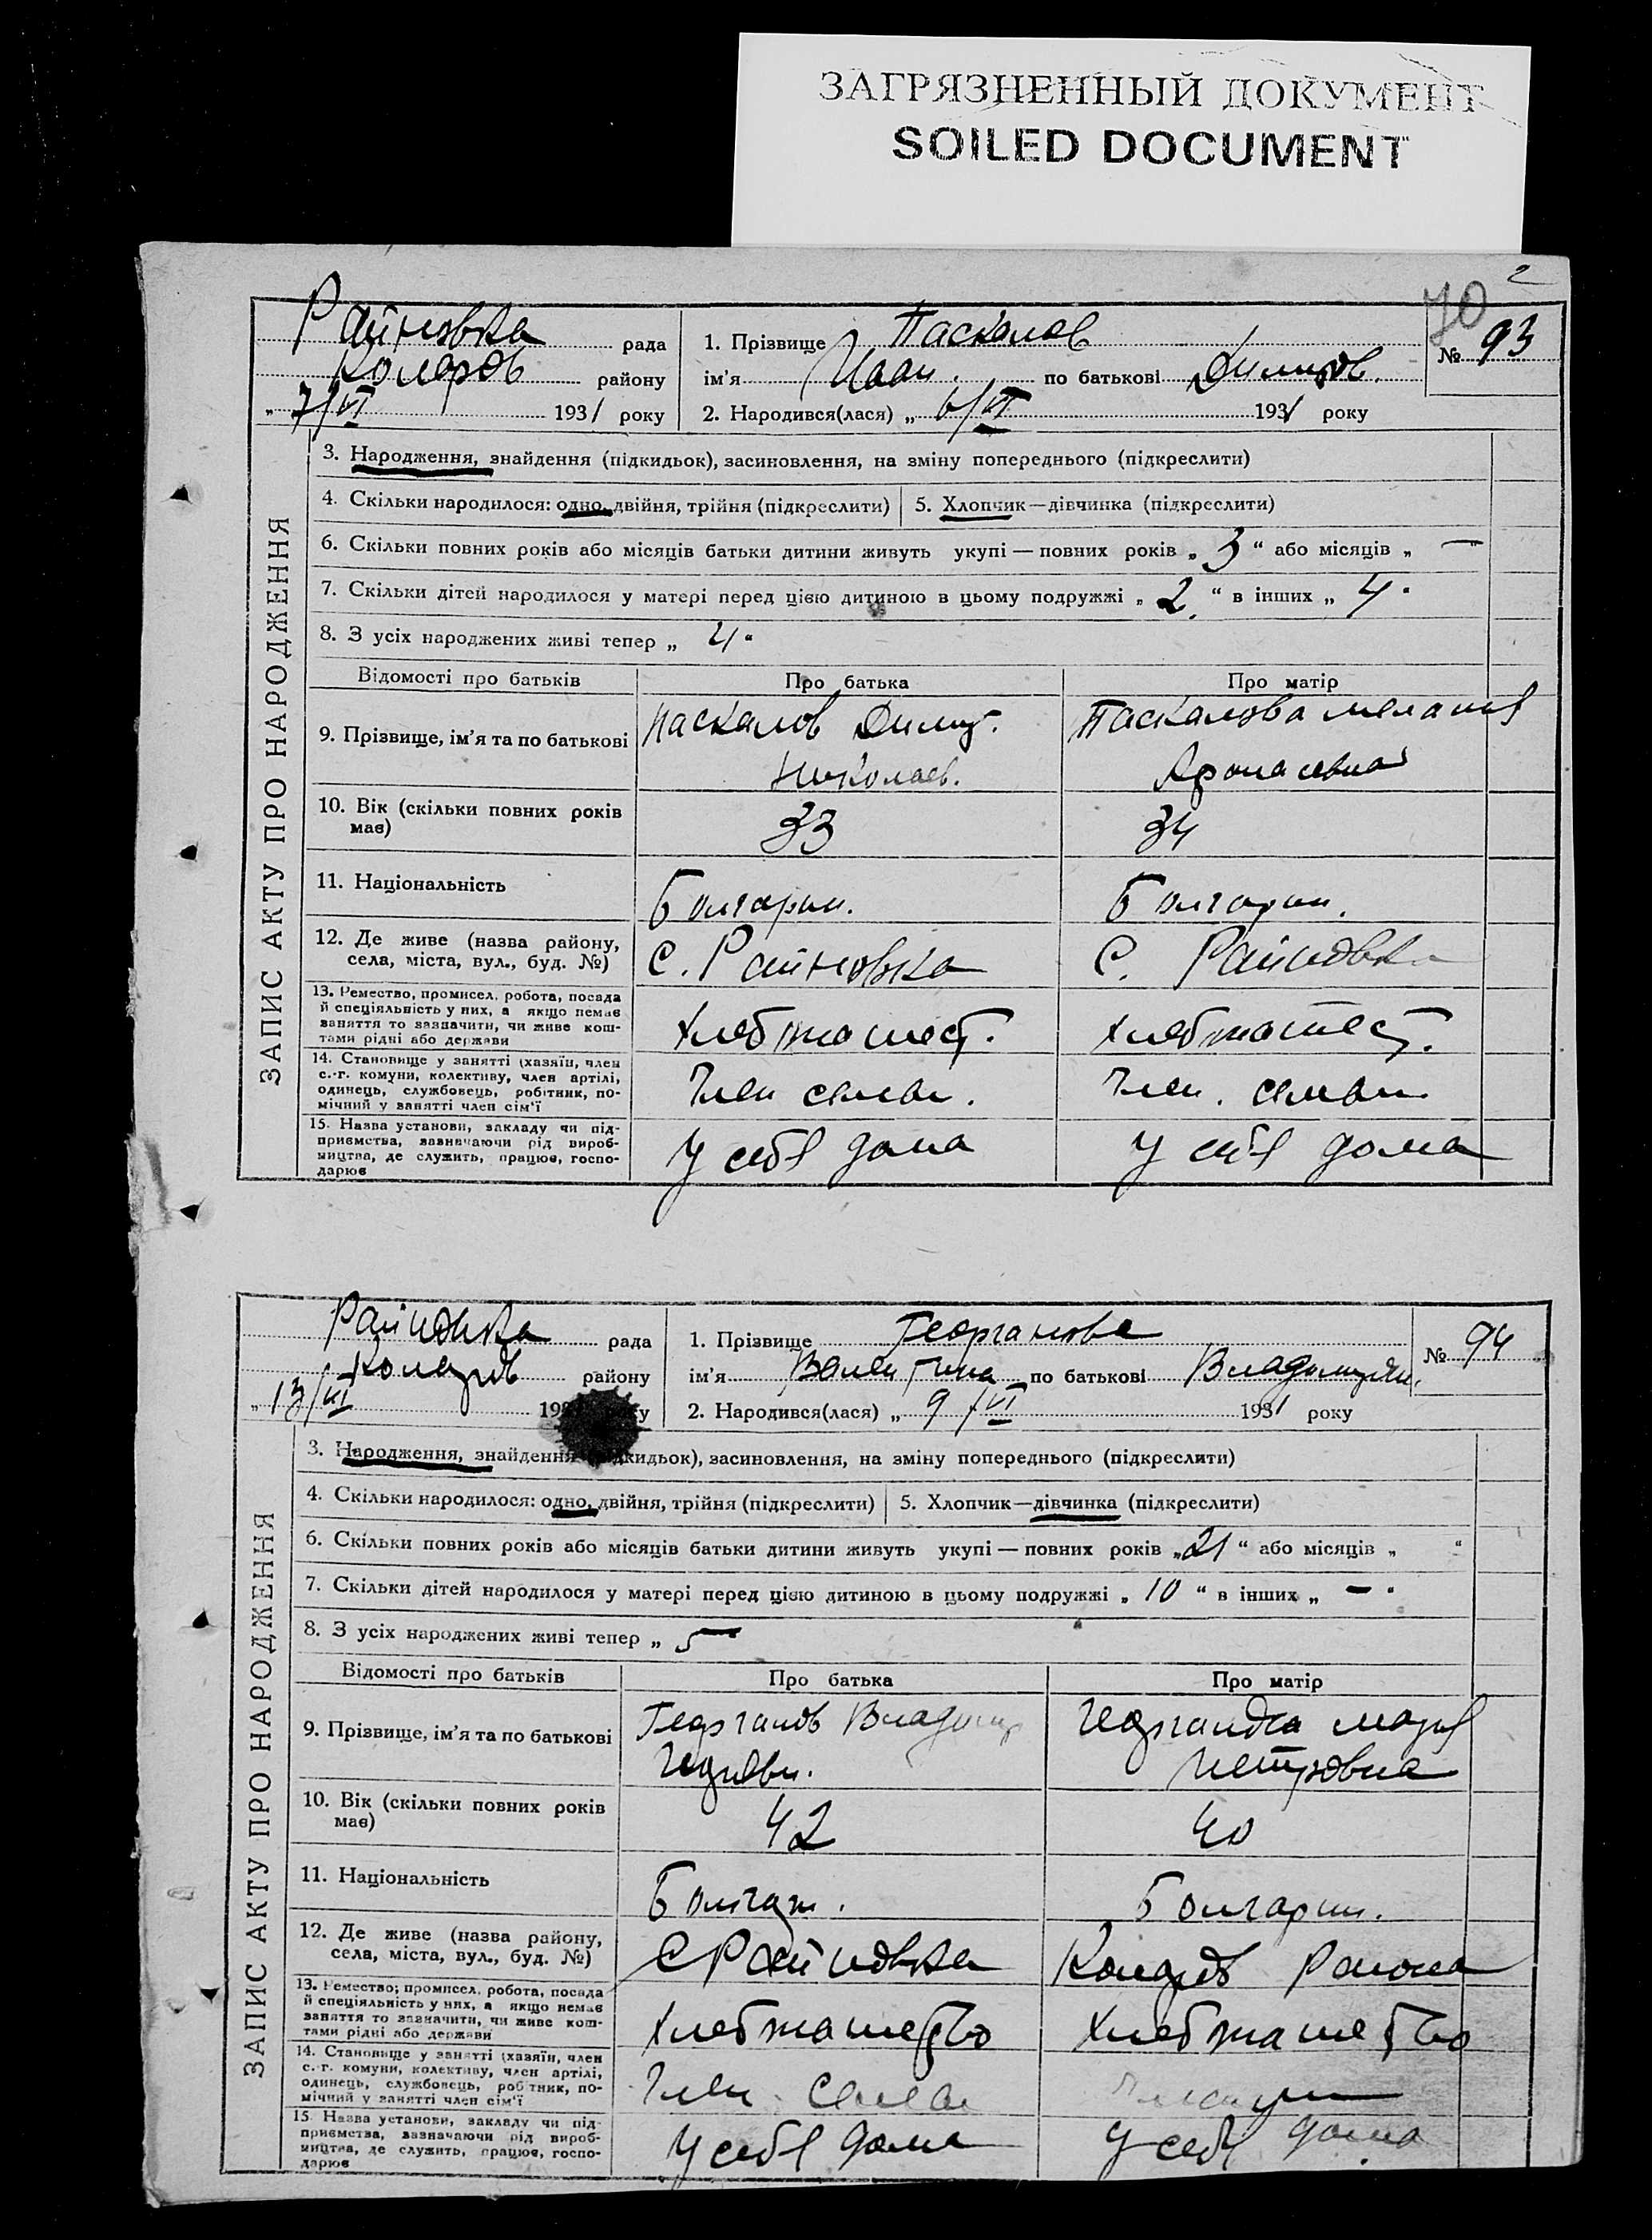 ЗАГРЯЗНЕННЫЙ ДОКУМЕНТ
SOILED DOCUMENT
2
70
Райновка рада
Коларов району
„ 7/VI 1931 року
1. Прізвище Паскалов
ім'я Иван по батькові Димитров.
2. Народився(лася) „ 6/VI 1931 року
№ 93
ЗАПИС АКТУ ПРО НАРОДЖЕННЯ
3. Народження, знайдення (підкидьок), засиновлення, на зміну попереднього (підкреслити)
4. Скільки народилося: одно, двійня, трійня (підкреслити) 5. Хлопчик—дівчинка (підкреслити)
6. Скільки повних років або місяців батьки дитини живуть укупі — повних років „ 3 “ або місяців „ — “
7. Скільки дітей народилося у матері перед цією дитиною в цьому подружжі „ 2 “ в інших „ 4 “
8. З усіх народжених живі тепер „ 4 “
Відомості про батьків Про батька Про матір
9. Прізвище, ім'я та по батькові Паскалов Димит. Паскалова Мелания
Николаев. Афанасевна
10. Вік (скільки повних років 33 34
має)
11. Національність Болгарин. Болгарин.
12. Де живе (назва району, с. Райновка с. Райновка
села, міста, вул., буд. №)
13. Ремество, промисел, робота, посада
й спеціяльність у них, а якщо немає
заняття то зазначити, чи живе кош- Хлебпашест. Хлебпашест.
тами рідні або держави
14. Становище у занятті (хазяїн, член
с.-г. комуни, колективу, член артілі,
одинець, службовець, робітник, по- Член семьи. Член. семьи
мічний у занятті член сім'ї
15. Назва установи, закладу чи під-
приємства, зазначаючи рід вироб-
ництва, де служить, працює, госпо- У себя дома У себя дома
дарює
Райновка рада
Коларов району
„ 13/VI 193
1. Прізвище Георганова
ім'я Валентина по батькові Владимирвн.
2. Народився(лася) „ 9/VI 1931 року
№ 94
ЗАПИС АКТУ ПРО НАРОДЖЕННЯ
3. Народження, знайдення (підкидьок), засиновлення, на зміну попереднього (підкреслити)
4. Скільки народилося: одно, двійня, трійня (підкреслити) 5. Хлопчик—дівчинка (підкреслити)
6. Скільки повних років або місяців батьки дитини живуть укупі — повних років „ 21 “ або місяців „ “
7. Скільки дітей народилося у матері перед цією дитиною в цьому подружжі „ 10 “ в інших „ — “
8. З усіх народжених живі тепер „ 5 “
Відомості про батьків Про батька Про матір
9. Прізвище, ім'я та по батькові Георганов Владимир Георганова Мария
Петровна
10. Вік (скільки повних років 42 40
має)
11. Національність Болгар. Болгарин.
12. Де живе (назва району, С Райновка Коларов района
села, міста, вул., буд. №)
13. Ремество; промисел, робота, посада
й спеціяльність у них, а якщо немає
заняття то зазначити, чи живе кош- Хлебпашество Хлебпашество
тами рідні або держави
14. Становище у занятті (хазяїн, член
с.-г. комуни, колективу, член артілі,
одинець, службовець, робітник, по- Член семьи
мічний у занятті член сім'ї
15. Назва установи, закладу чи під-
приємства, зазначаючи рід вироб-
ництва, де служить, працює, госпо- У себя дома У себя дома
дарює